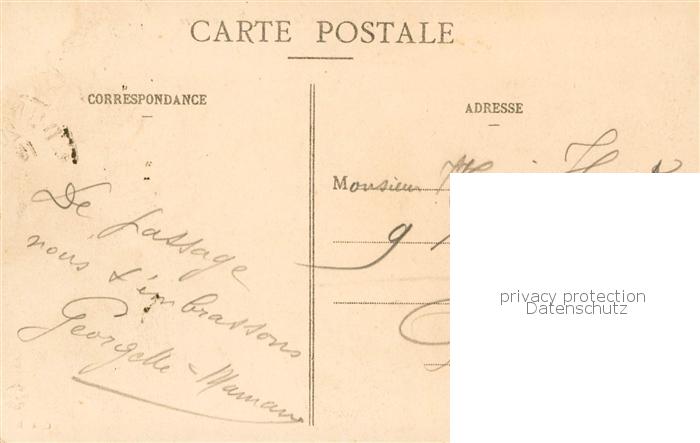 CARTE POSTALE
CORRESPONDANCE
ADRESSE
De passage
nous t'embrassons
Georgette - Maman
Monsieur
9
privacy protection
Datenschutz